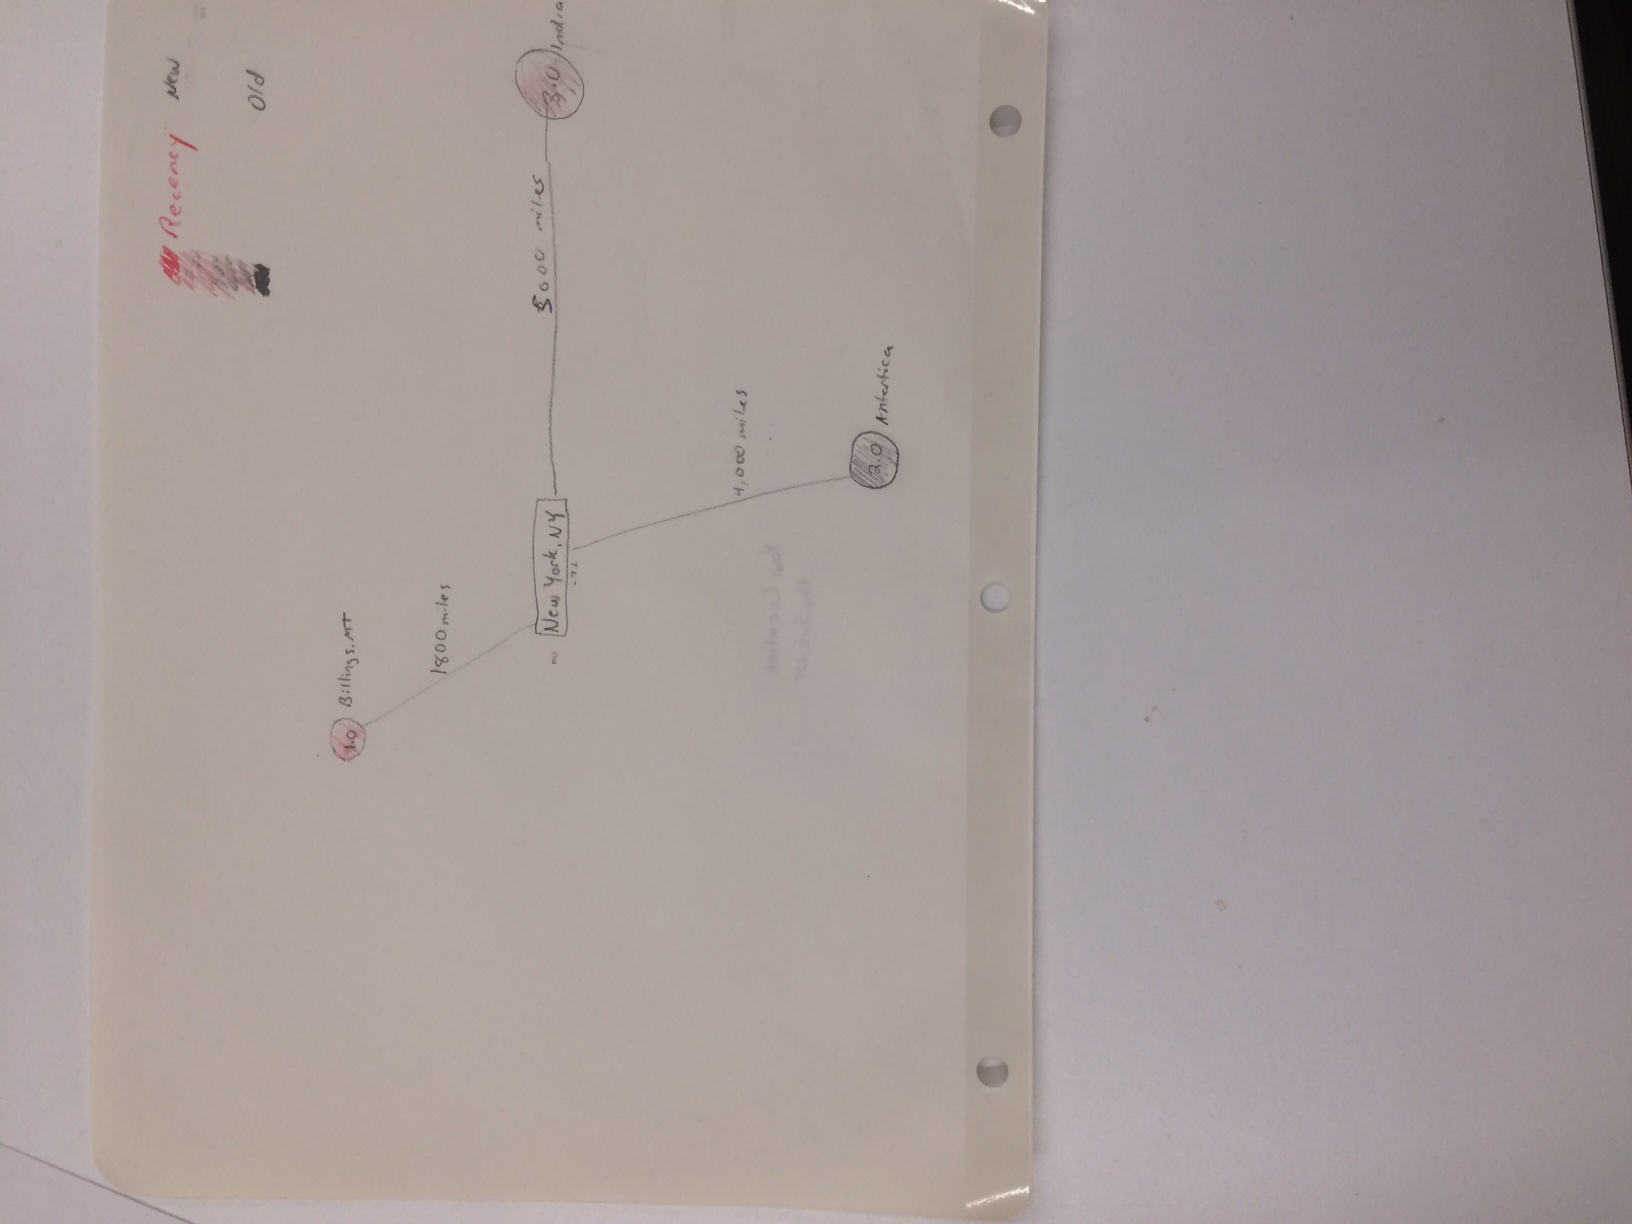 Recency New
Old
1.0 Billings, MT
1800 miles
New York, NY
8000 miles
3.0 India
4,000 miles
2.0 Antartica